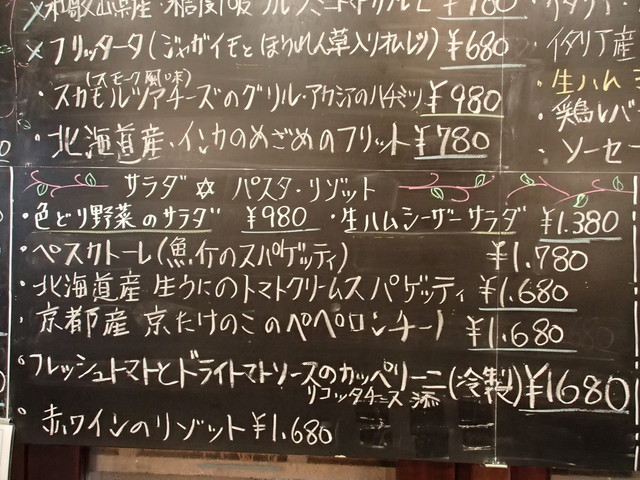 和歌山県産・ ¥780
×フリッタータ(ジャガイモとほうれん草入りオムレツ)¥680
・イタリア産
(スモーク風味)
・スカモルツァチーズのグリル・アカシアのハチミツ ¥980
・生ハム
・鶏レバ
・北海道産・インカのめざめのフリット ¥780
・ソーセー
サラダ ✡ パスタ・リゾット
・色どり野菜のサラダ ¥980 ・生ハムシーザーサラダ ¥1.380
・ペスカトーレ(魚介のスパゲッティ) ¥1.780
・北海道産 生うにのトマトクリームスパゲッティ ¥1.680
・京都産 京たけのこのペペロンチーノ ¥1.680
・フレッシュトマトとドライトマトソースのカッペリーニ(冷製)¥1680
リコッタチーズ添
・赤ワインのリゾット ¥1.680